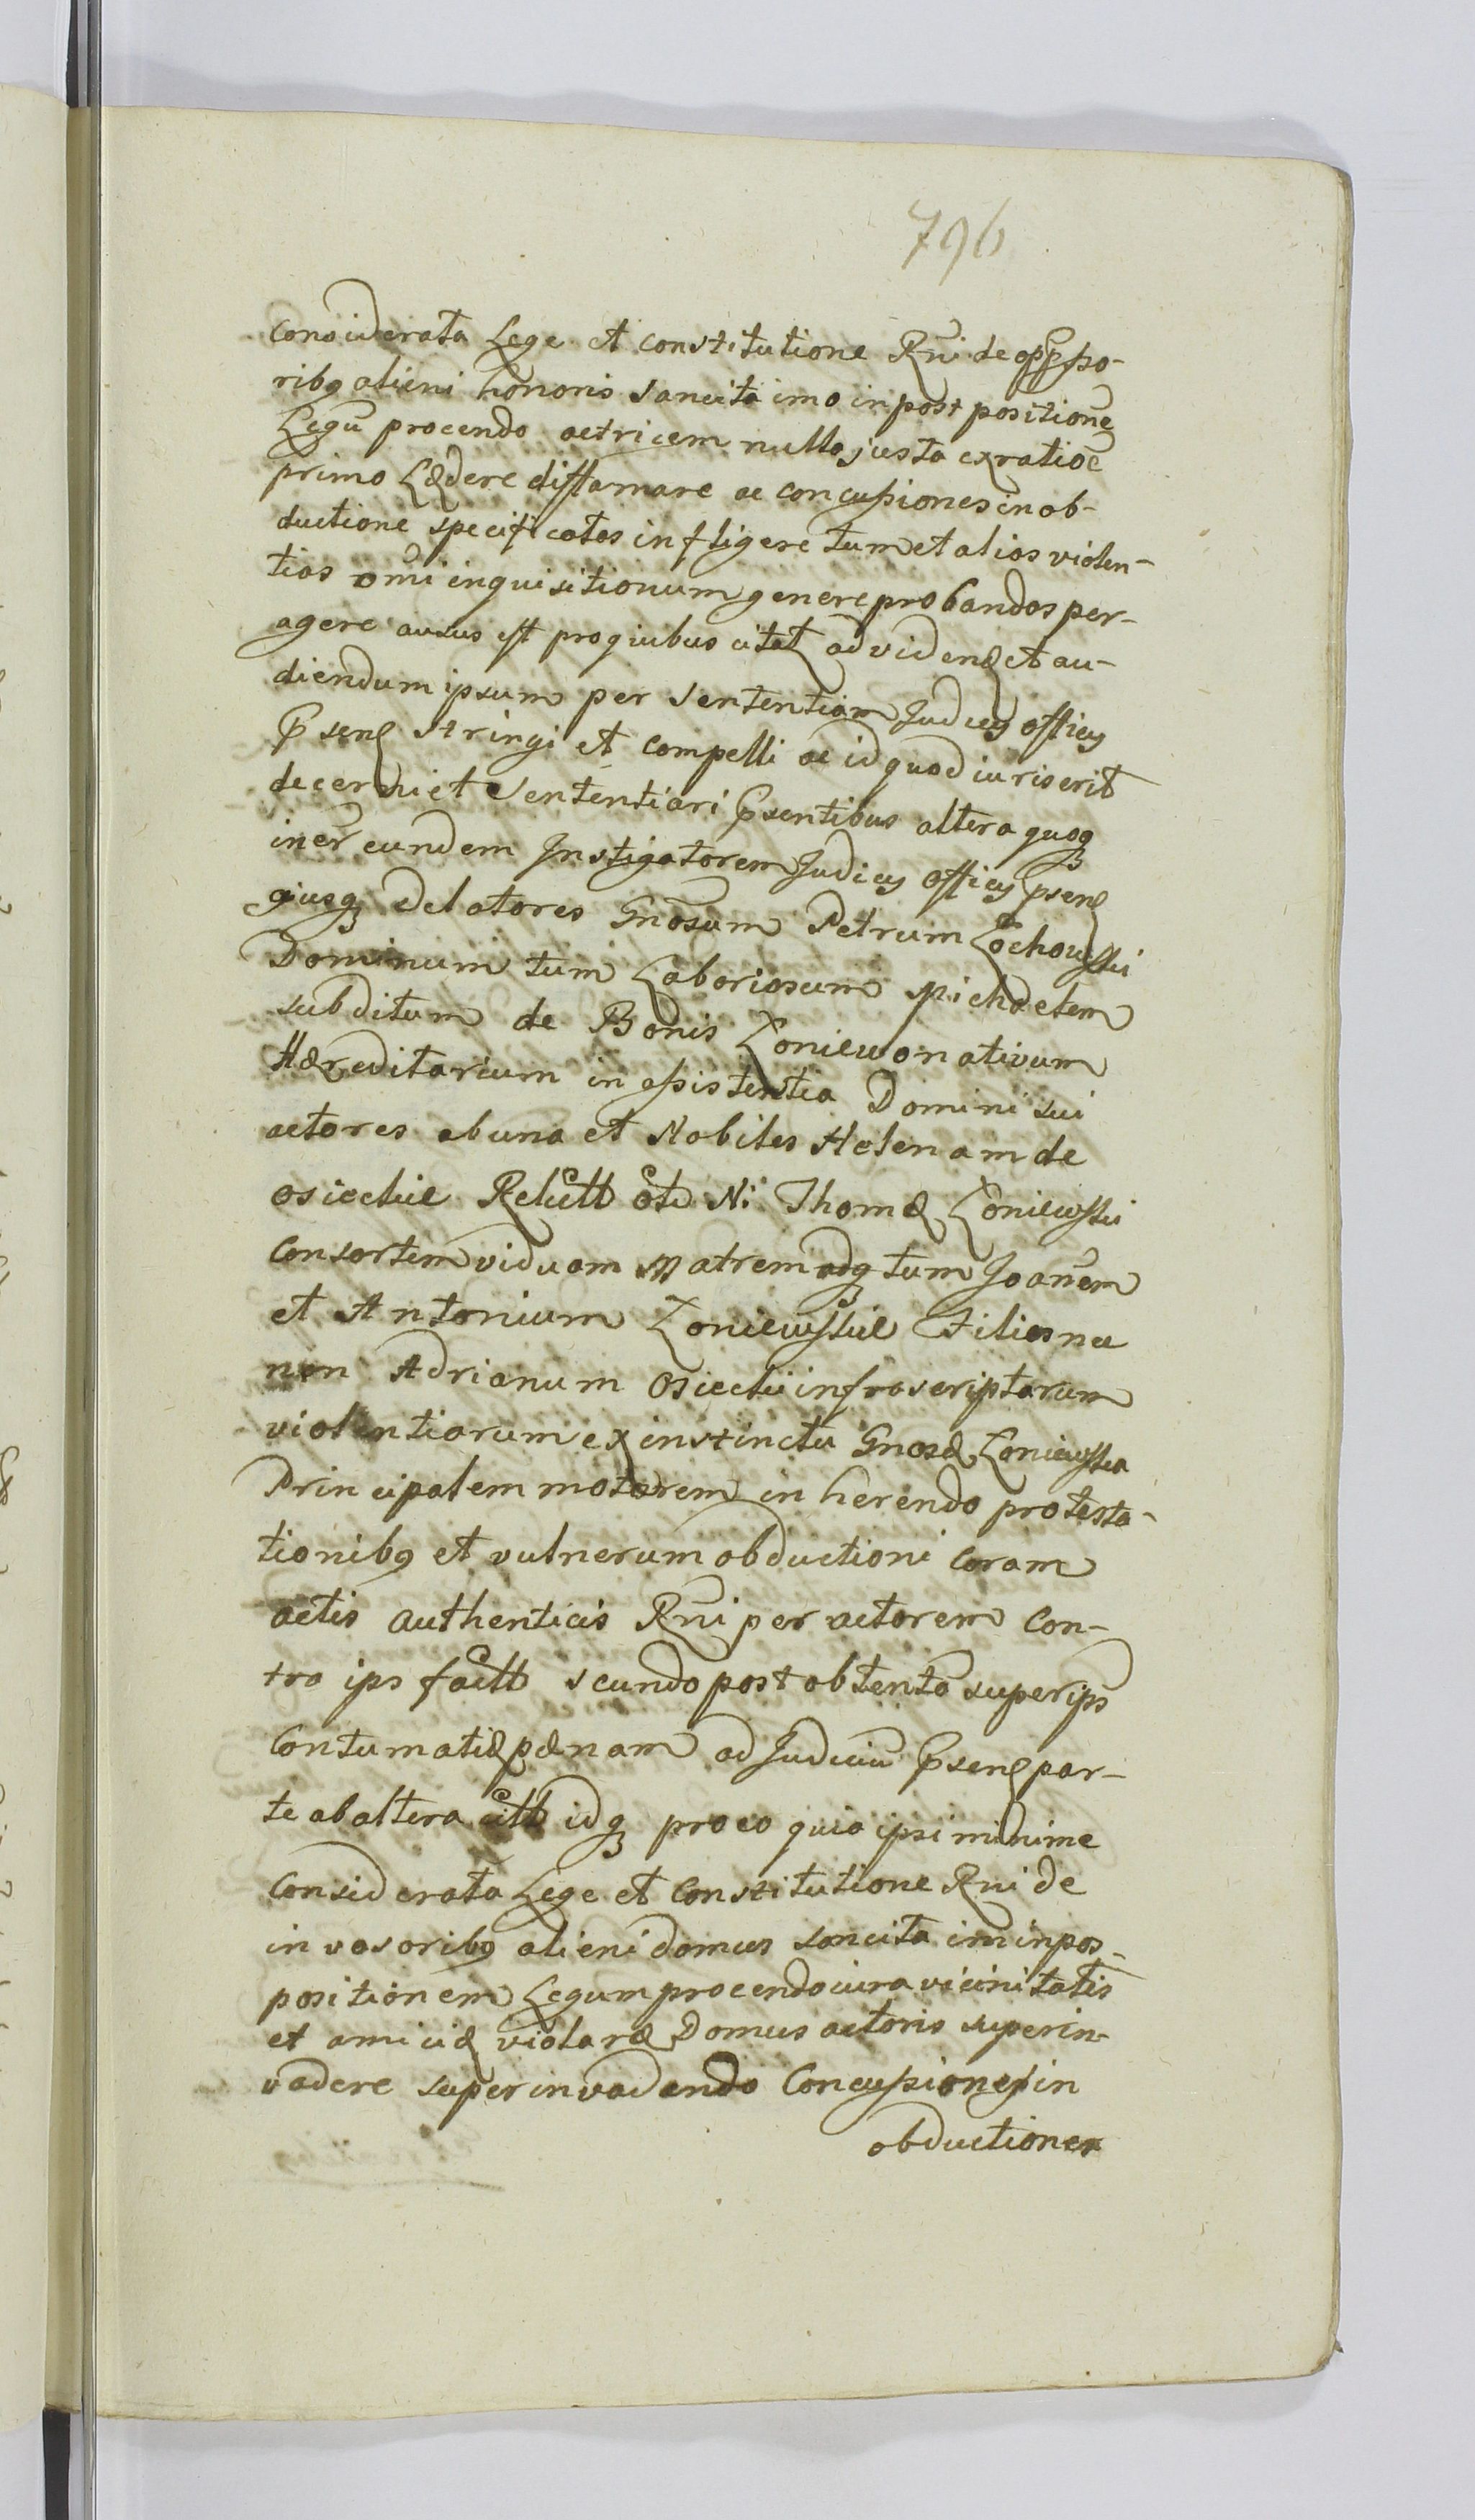 796
Considerata Lege et constitutione Rni de oppsso-
ribq alieni honoris sancita imo in post positione
Legū procendo actricem nulla justa ex ratioē
primo Lædere diffamare ac concussiones in ob-
ductione specificatas infligere tum et alias violen-
tias omi inquisitionum genere probandas per-
agere ausus est pro quibus citat ad vidend et au-
diendum ipsum per sententiam Judicy officy
psens stringi et compelli ac id quod iuris erit
decerni et sententiari psentibus altera quoq
in er eundem Instigatorem Judicy officy psens
eiusq delatores Gnosum Petrum Łochowski
Dominum tum Laboriosum
subditum de Bonis Łoniewo nativum
Hæreditarium in assistentia Domini sui
actores ab una et Nobiles Helenam de
osieckie Relictt Ni Thomæ Łoniewski
Consortem viduam Matrem adq tum Joanem
et Antonium Łoniewskie Filios nec
non Adrianum Osiecki infrascriptarum
violentiarum ex instinctu Gnosæ Łoniewska
Principalem motorem in herendo protesta-
tionibq et vulnerum obductioni coram
actis authenticis Rni per actorem con-
tra ips factt scundo post obtentā super ips
Contumatiæ pænam ad Judiciū psens par-
te ab altera citt idq pro eo quia ipsi minime
Considerata Lege et Constitutione Rni de
invasoribq alieni domus sancita im in pos-
positionem Legum procendo iura vicinitatis
et amiciæ violaræ Domus actoris superin-
vadere super invadendo Concussiones in
obductiones